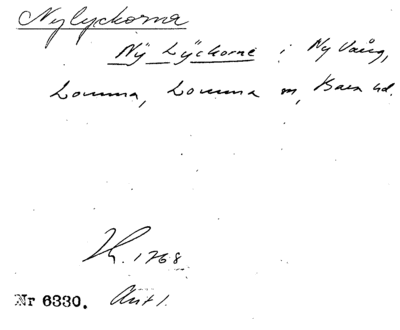 Nylyckorna
Nÿ Lÿckorne i Ny Vång,
Lomma, Lomma m, Bara hd.
H. 1768
Nr 6330. Avt 1.